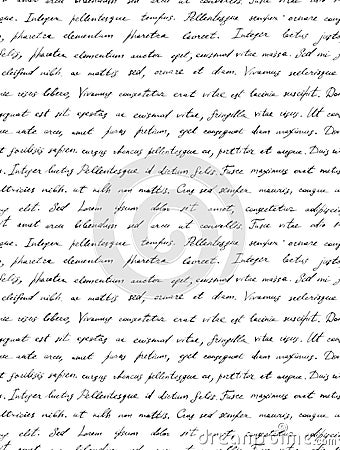 t arcu bibendum sed arcu ut convallis. Fusce vitae odio
que. Integer pellentesque tempus. Pellentesque semper ornare cong
, pharetra elementum pharetra laoreet. Integer lectus justo
felis, pharetra elementum auctor eget, euismod vitae massa. Sed mi
eleifend nibh, ac mattis sed, ornare et diam. Vivamus scelerisque
nec risus libero, Vivamus consectetur erat vitae est lacinia suscipit. Do
equat est sit egestas ac euismod vitae, fringilla vitae risus. Ut
ue ante arcu, amet justo pretium, eget consequat diam maximus. Do
t facilisis sapien. cursus rhoncus pellentesque ac, porttitor et augue. Duis
s. Integer luctus Pellentesque id dictum felis. Fusce maximus erat matti
ultricies nibh. ut nibh non mattis. Cras sed semper mauris, congue
ng elit. Sed Lorem ipsum dolor sit amet, consectetur adipiscing
t arcu bibendum sed arcu ut convallis. Fusce vitae odio
que. Integer pellentesque tempus. Pellentesque semper ornare cong
, pharetra elementum pharetra laoreet. Integer lectus justo
felis, pharetra elementum auctor eget, euismod vitae massa. Sed mi
eleifend nibh, ac mattis sed, ornare et diam. Vivamus scelerisque
nec risus libero, Vivamus consectetur erat vitae est lacinia suscipit. Do
equat est sit egestas ac euismod vitae, fringilla vitae risus. Ut
ue ante arcu, amet justo pretium, eget consequat diam maximus.
t facilisis sapien. cursus rhoncus pellentesque ac, porttitor et augue. Duis
s. Integer luctus Pellentesque id dictum felis. Fusce maximus erat
ultricies nibh. ut nibh non mattis. Cras sed semper mauris, congue
ng elit. Sed Lorem ipsum dolor sit
dreamstime.com